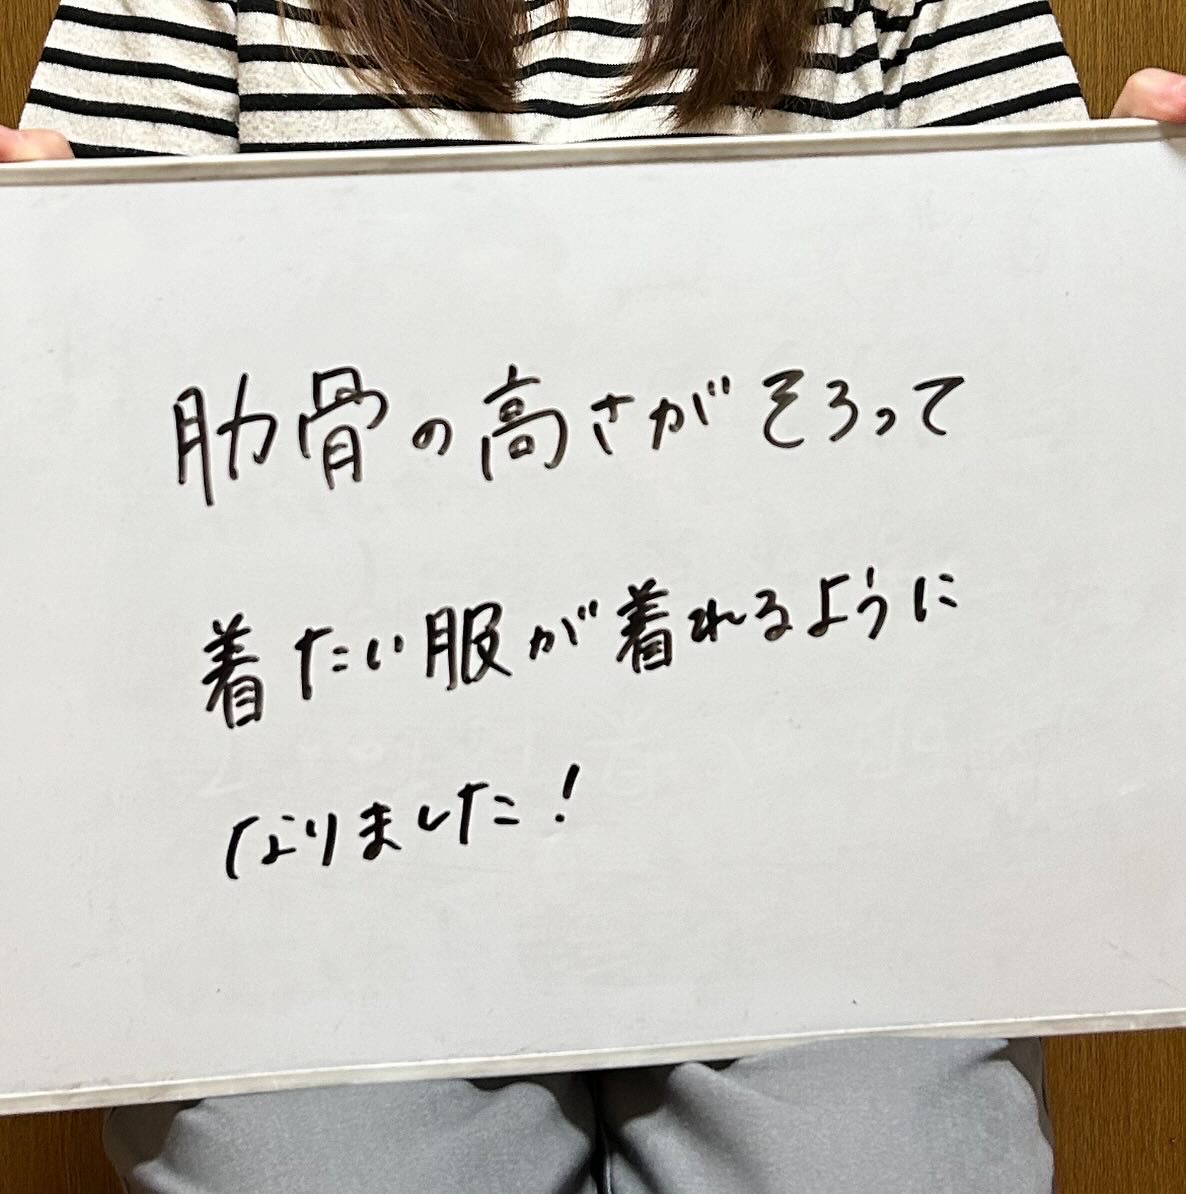 肋骨の高さがそろって
着たい服が着れるように
なりました！